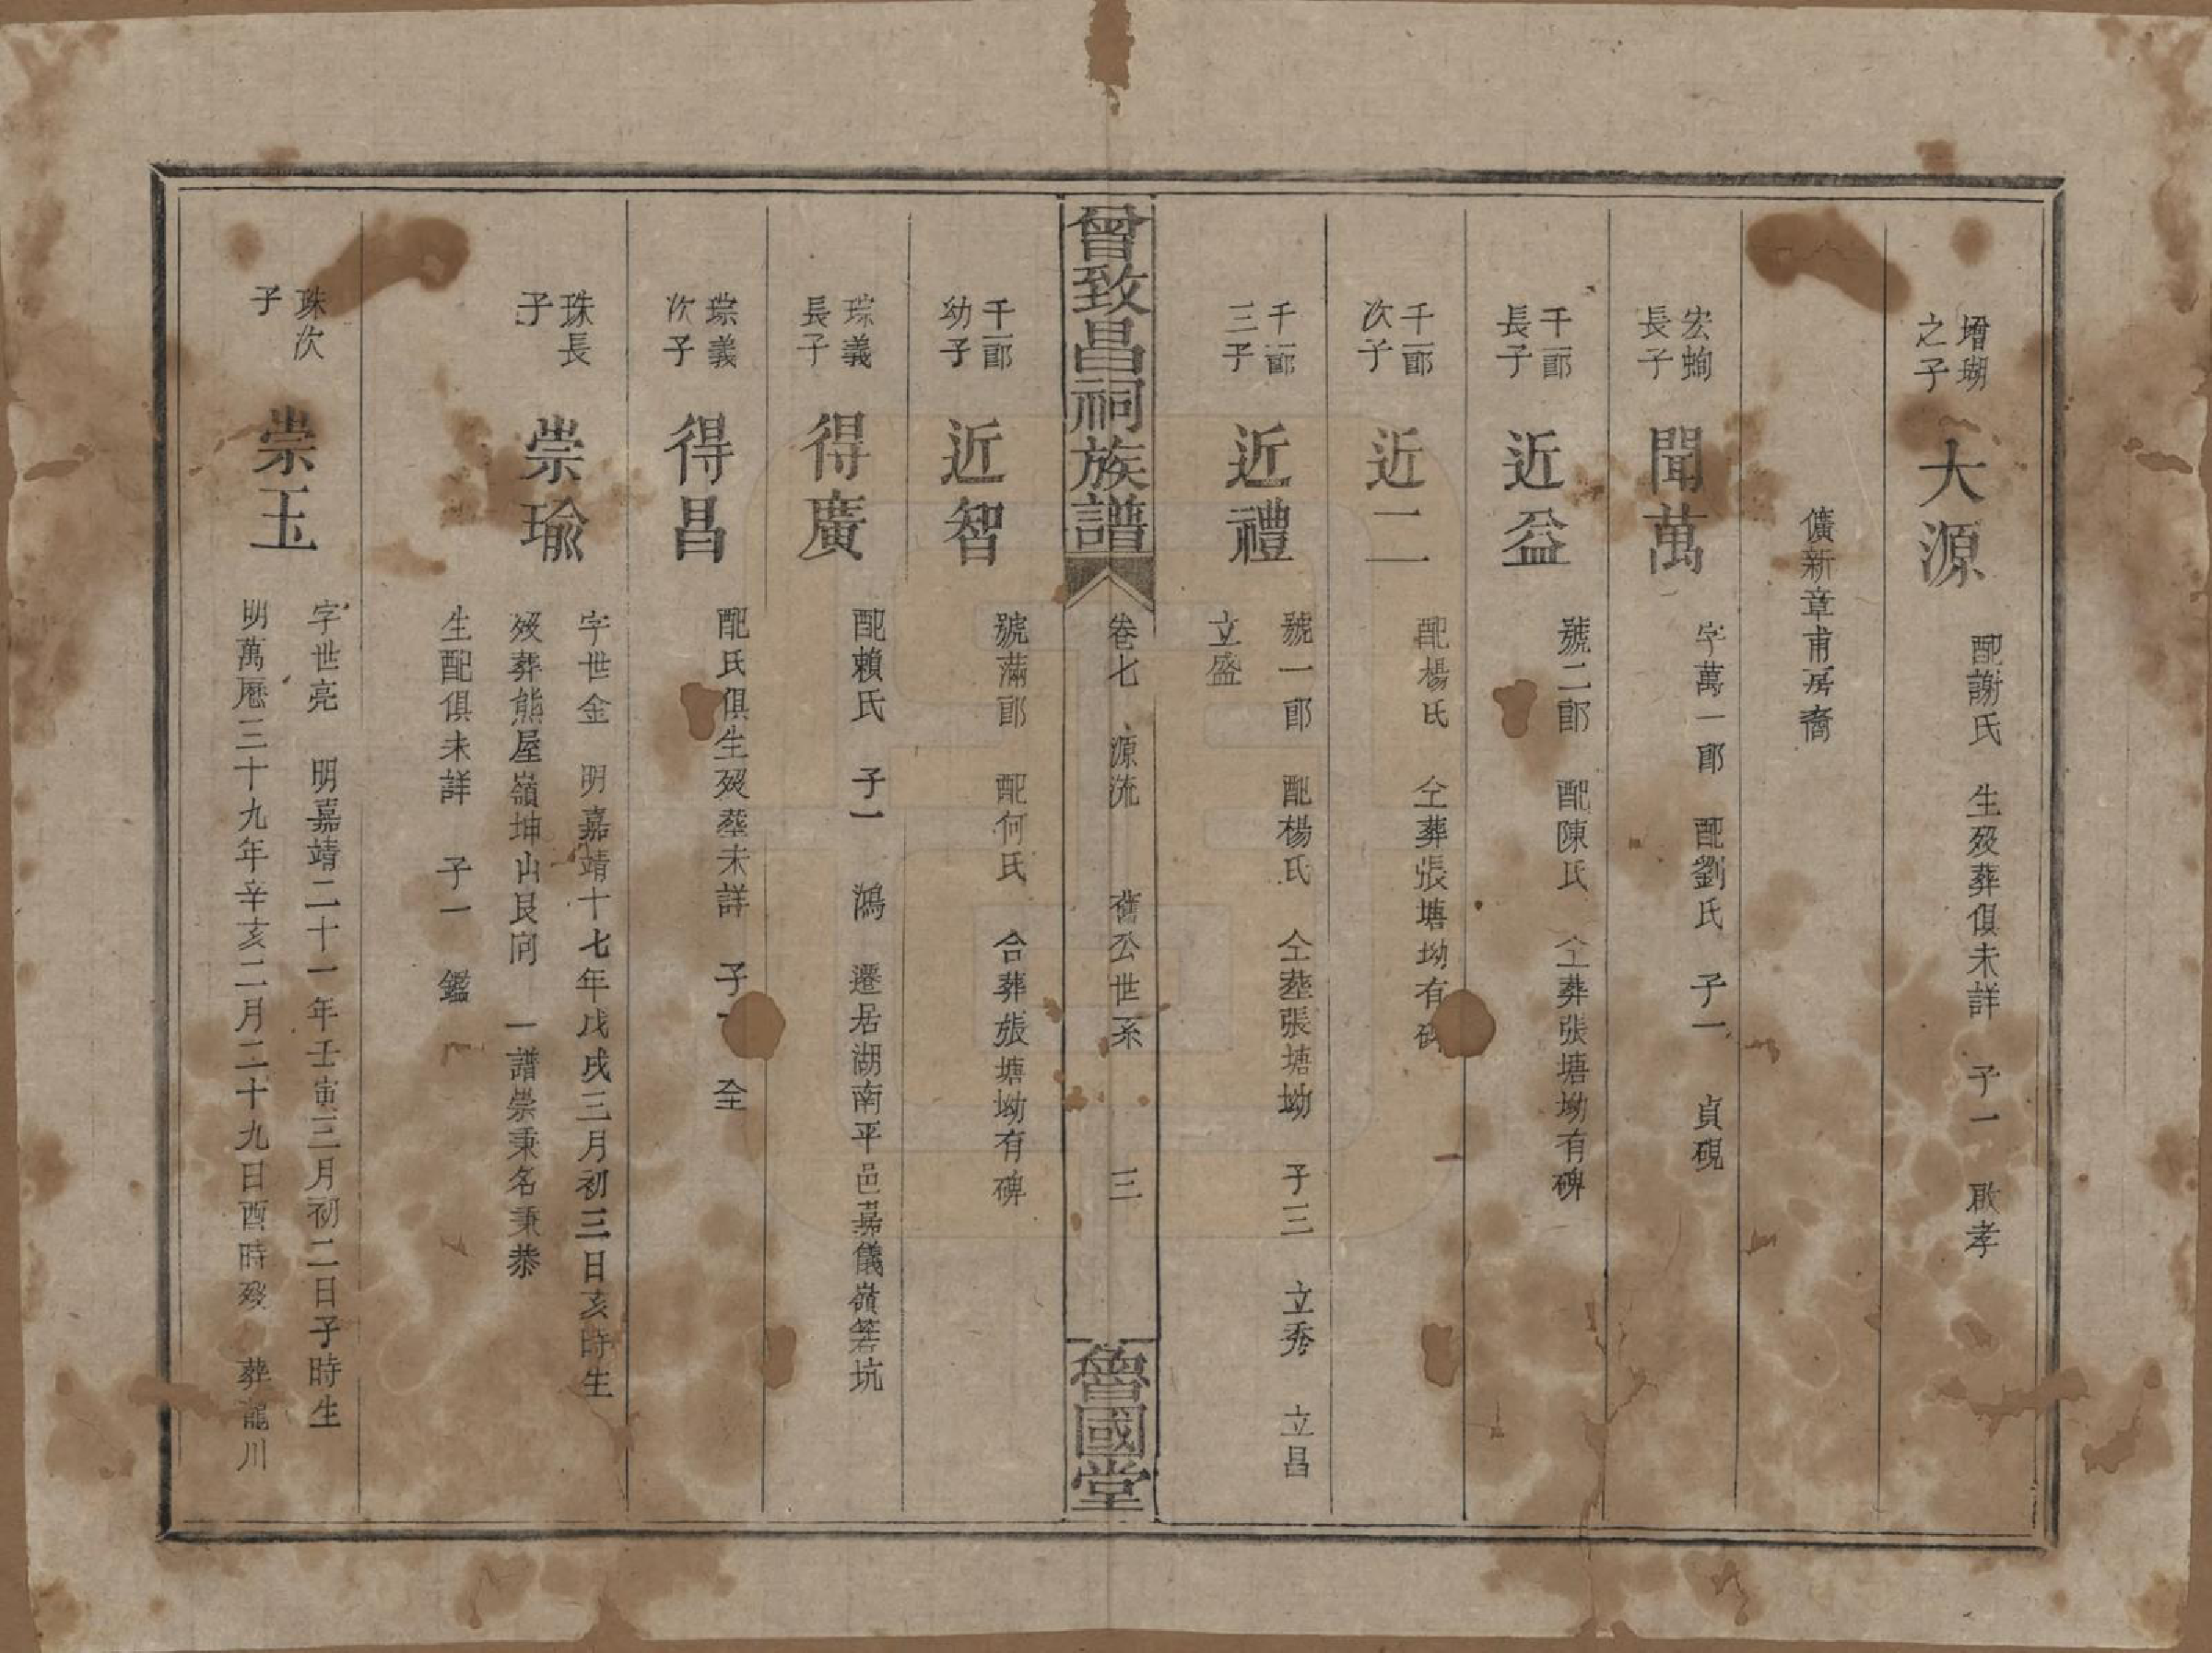 增瑚
之子
大源
配謝氏　生歿葬俱未詳　子一　啟孝
儣新章甫房裔
宏蜔
長子
聞萬
字萬一郎　配劉氏　子一　貞硯
千一郎
長子
近益
號二郎　配陳氏　仝葬張塘坳有碑
千一郎
次子
近二
配楊氏　仝葬張塘坳有碑
千一郎
三子
近禮
號一郎　配楊氏　仝塟張塘坳　子三　立秀　立昌
立盛
曾致昌祠族譜
卷七　源流　舊公世系　三
魯國堂
千一郎
幼子
近智
號滿郎　配何氏　合葬張塘坳有碑
琮義
長子
得廣
配賴氏　子一　鴻　遷居湖南平邑嘉儀嶺箬坑
琮義
次子
得昌
配氏俱生歿塟未詳　子一　全
珠長
子
崇瑜
字世金　明嘉靖十七年戊戌三月初三日亥時生
歿葬熊屋嶺坤山艮向　一譜崇秉名秉恭
生配俱未詳　子一　鑑
珠次
子
崇玉
字世亮　明嘉靖二十一年壬寅三月初二日子時生
明萬厯三十九年辛亥二月二十九日酉時歿　葬龍川